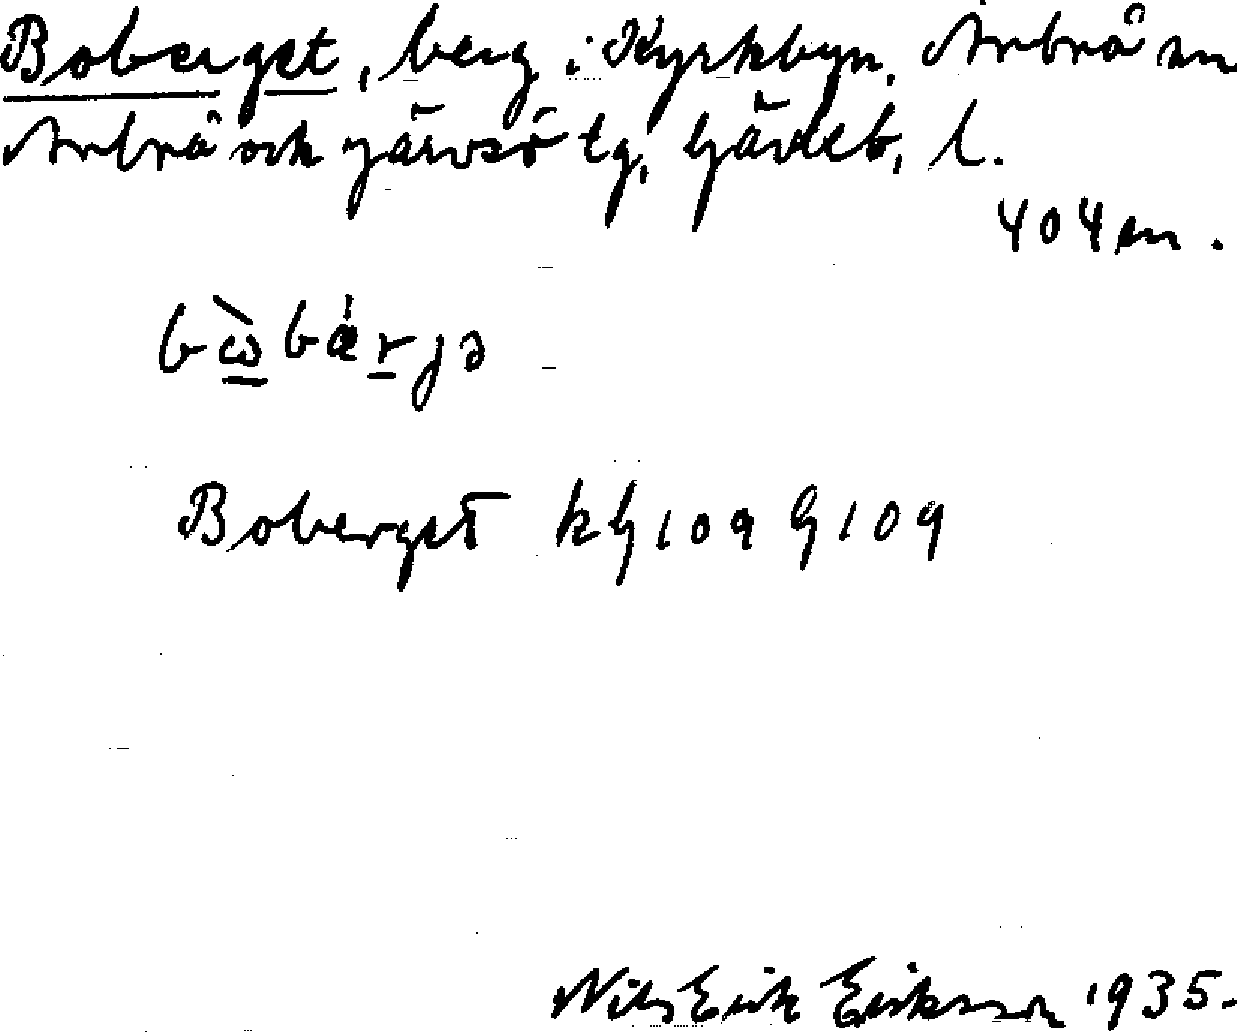 Boberget, berg i Kyrkbyn, Arbrå sn
Arbrå och Järvsö tg, Gävleb. l.
404 m.
bὼ̲bæ̍r̲jə
Boberget kG109 G109
Nils Erik Eriksson 1935.